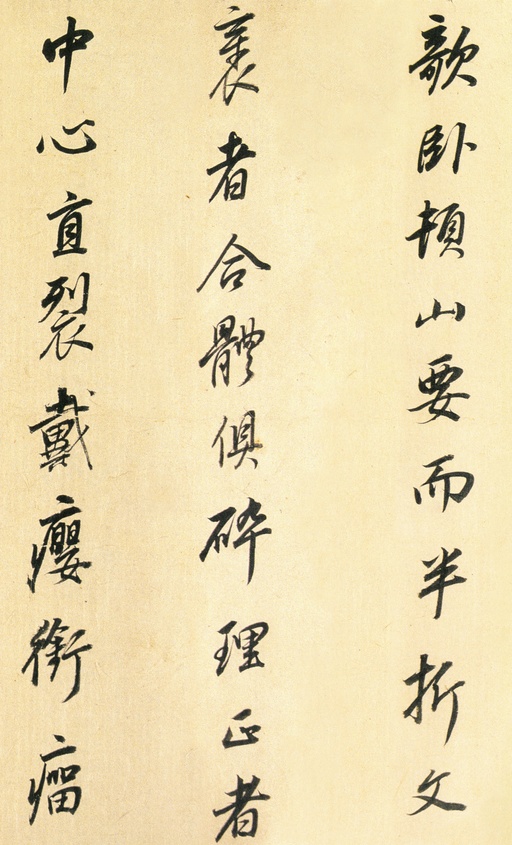 欹臥頓山要而半折文
衺者合體俱碎理正者
中心直裂戴癭銜瘤